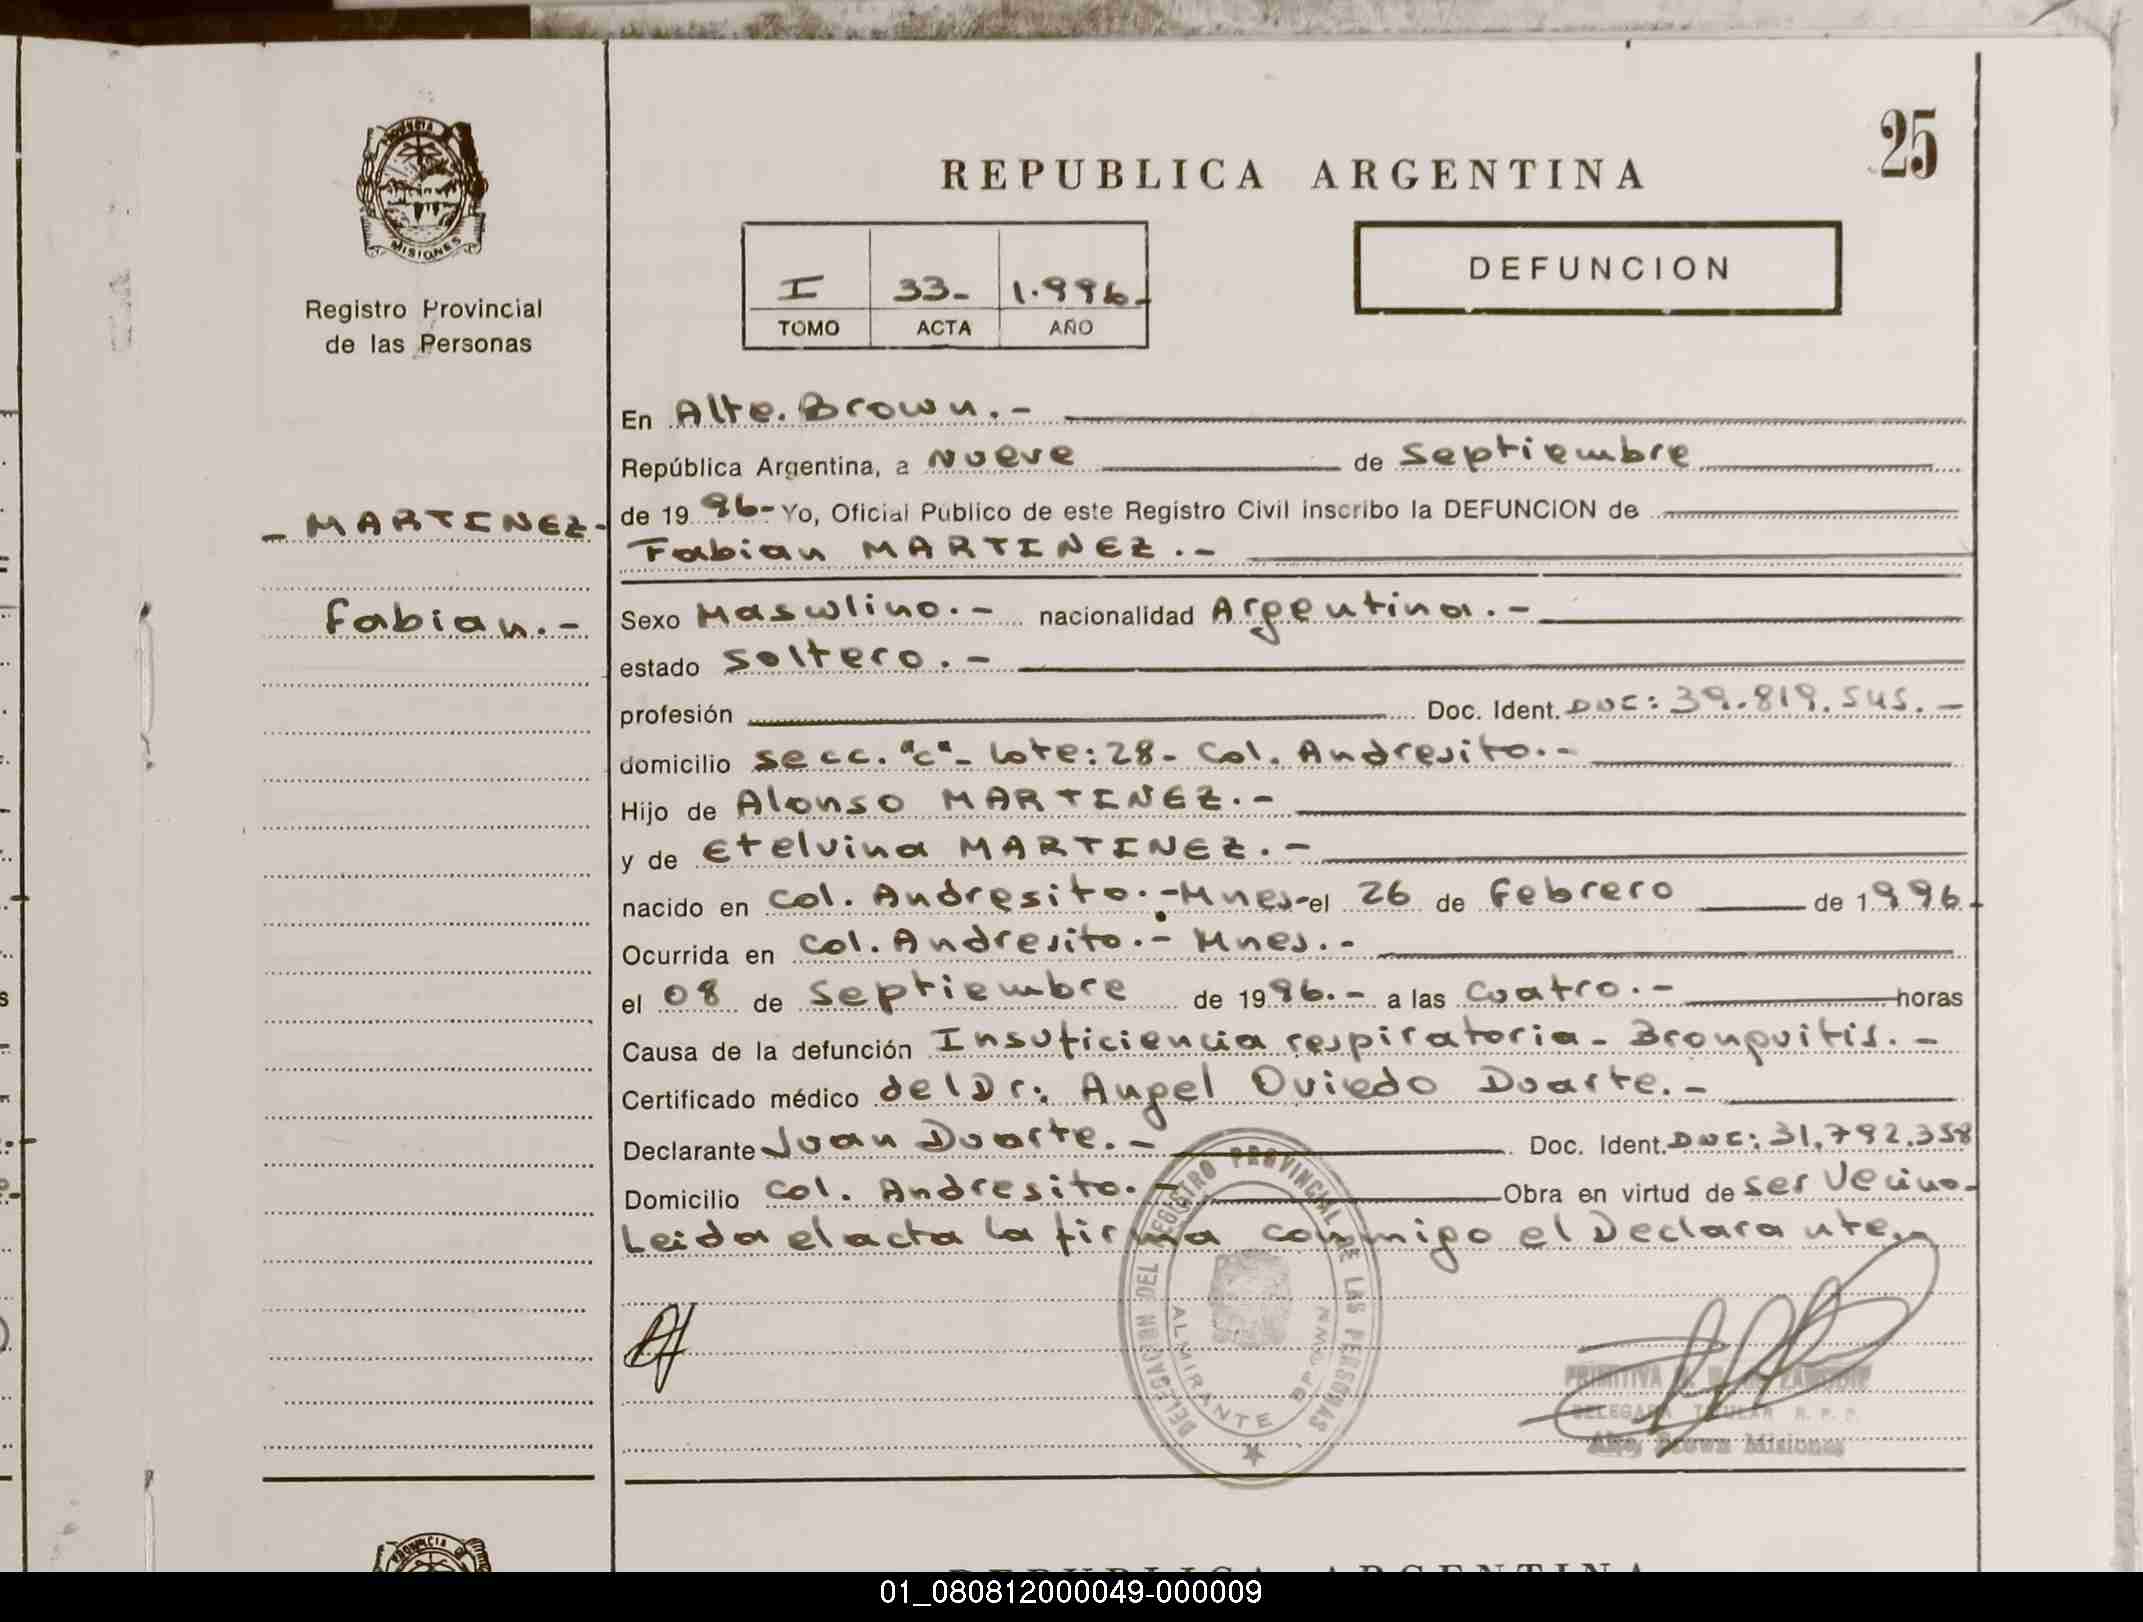 PROVINCIA
MISIONES
Registro Provincial
de las Personas
- MARTINEZ-
Fabian.-
25
REPUBLICA ARGENTINA
I 33- 1.996-
TOMO ACTA AÑO
DEFUNCION
En Alte. Brown.-
República Argentina, a Nueve de septiembre
de 1996- Yo, Oficial Público de este Registro Civil inscribo la DEFUNCION de
Fabian MARTINEZ.-
Sexo Masculino.- nacionalidad Argentina.-
estado soltero.-
profesión Doc. Ident. DUC: 39.819.545.-
domicilio secc. "c"- Lote: 28- Col. Andresito.-
Hijo de Alonso MARTINEZ.-
y de Etelvina MARTINEZ.-
nacido en Col. Andresito.-Mnes-el 26 de Febrero de 1996-
Ocurrida en Col. Andresito.- Mnes.-
el 08 de septiembre de 1996.- a las cuatro.- horas
Causa de la defunción Insuficiencia respiratoria- Bronquitis.-
Certificado médico del Dr: Angel Oviedo Duarte.-
Declarante Juan Duarte.- Doc. Ident. DUC: 31.792.358
Domicilio Col. Andresito.- Obra en virtud de ser Vecino-
Leida el acta la firma conmigo el Declarante.-
DELEGACION DEL REGISTRO PROVINCIAL DE LAS PERSONAS
ALMIRANTE BROWN
PRIMITIVA
DELEGADA TITULAR R. P. P.
Alte. Brown Misiones
REPUBLICA ARGENTINA
01_080812000049-000009